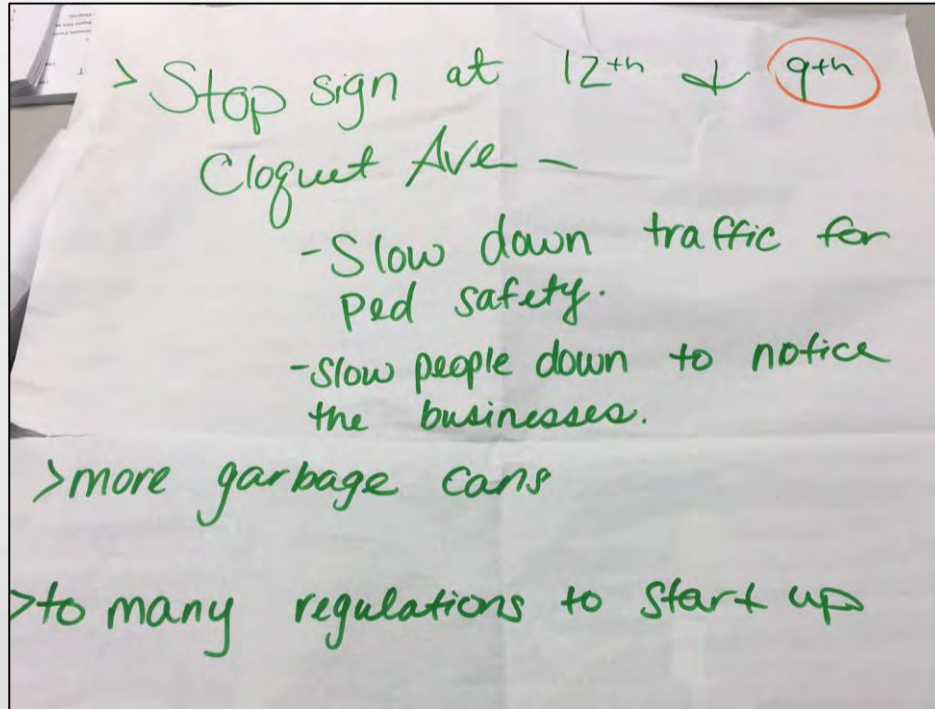 > Stop sign at 12th & 9th
Cloquet Ave -
- Slow down traffic for
ped safety.
- Slow people down to notice
the businesses.
> more garbage cans
> to many regulations to start up